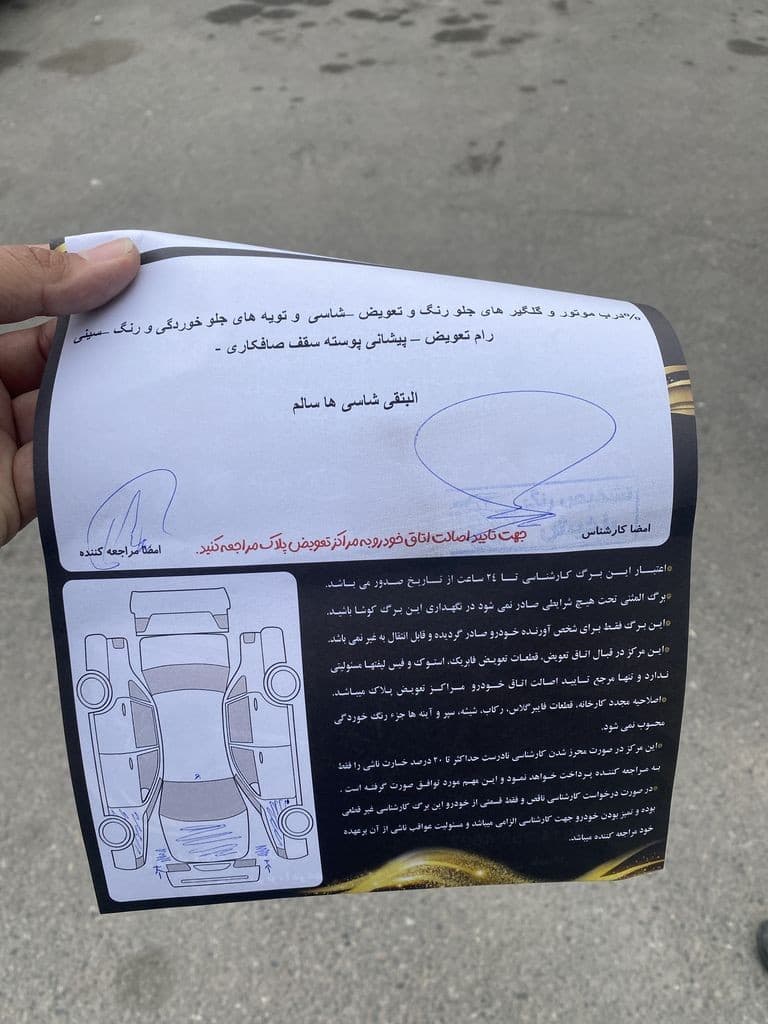 %درب موتور و گلگیر های جلو رنگ و تعویض –شاسی و تویه های جلو خوردگی و رنگ –سینی
رام تعویض – پیشانی پوسته سقف صافکاری -
البتقی شاسی ها سالم
امضا کارشناس
امضا مراجعه کننده
جهت تایید اصالت اتاق خودرو به مراکز تعویض پلاک مراجعه کنید.
اعتبار این برگ کارشناسی تا ۲۴ ساعت از تاریخ صدور می باشد.
برگ المثنی تحت هیچ شرایطی صادر نمی شود در نگهداری این برگ کوشا باشید.
این برگ فقط برای شخص آورنده خودرو صادر گردیده و قابل انتقال به غیر نمی باشد.
این مرکز در قبال اتاق تعویض، قطعات تعویض فابریک، استوک و فیس لیفتها مسئولیتی
ندارد و تنها مرجع تایید اصالت اتاق خودرو مراکز تعویض پلاک میباشد.
اصلاحیه مجدد کارخانه، قطعات فایبرگلاس، رکاب، شیشه، سپر و آینه ها جزء رنگ خوردگی
محسوب نمی شود.
این مرکز در صورت محرز شدن کارشناسی نادرست حداکثر تا ۲۰ درصد خسارت ناشی را فقط
به مراجعه کننده پرداخت خواهد نمود و این مهم مورد توافق صورت گرفته است.
در صورت درخواست کارشناسی ناقص و فقط قسمتی از خودرو این برگ کارشناسی غیر قطعی
بوده و تمیز بودن خودرو جهت کارشناسی الزامی میباشد و مسئولیت عواقب ناشی از آن برعهده
خود مراجعه کننده میباشد.